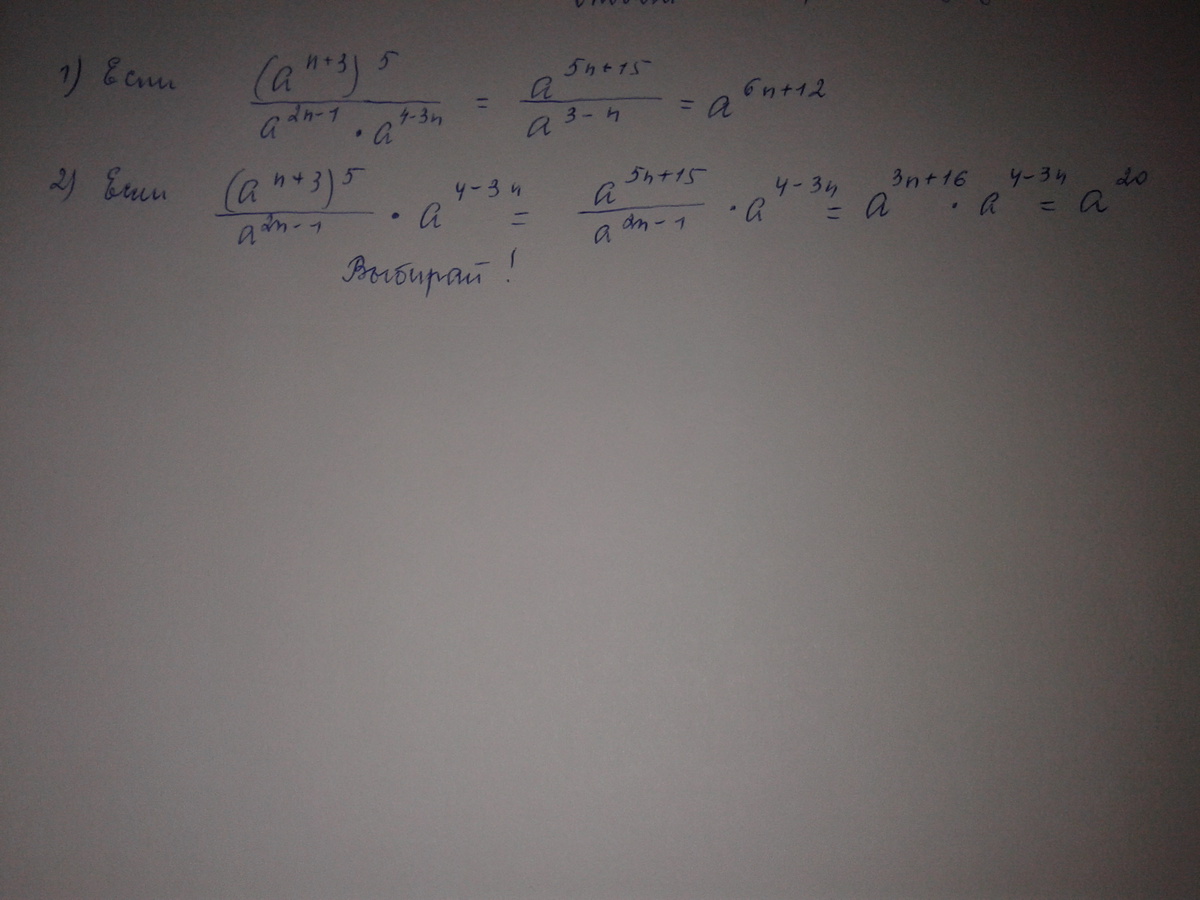 1) Если (a^{n+3})^5 / (a^{2n-1} · a^{4-3n}) = a^{5n+15} / a^{3-n} = a^{6n+12}
2) Если (a^{n+3})^5 / a^{2n-1} · a^{4-3n} = a^{5n+15} / a^{2n-1} · a^{4-3n} = a^{3n+16} · a^{4-3n} = a^{20}
Выбирай!